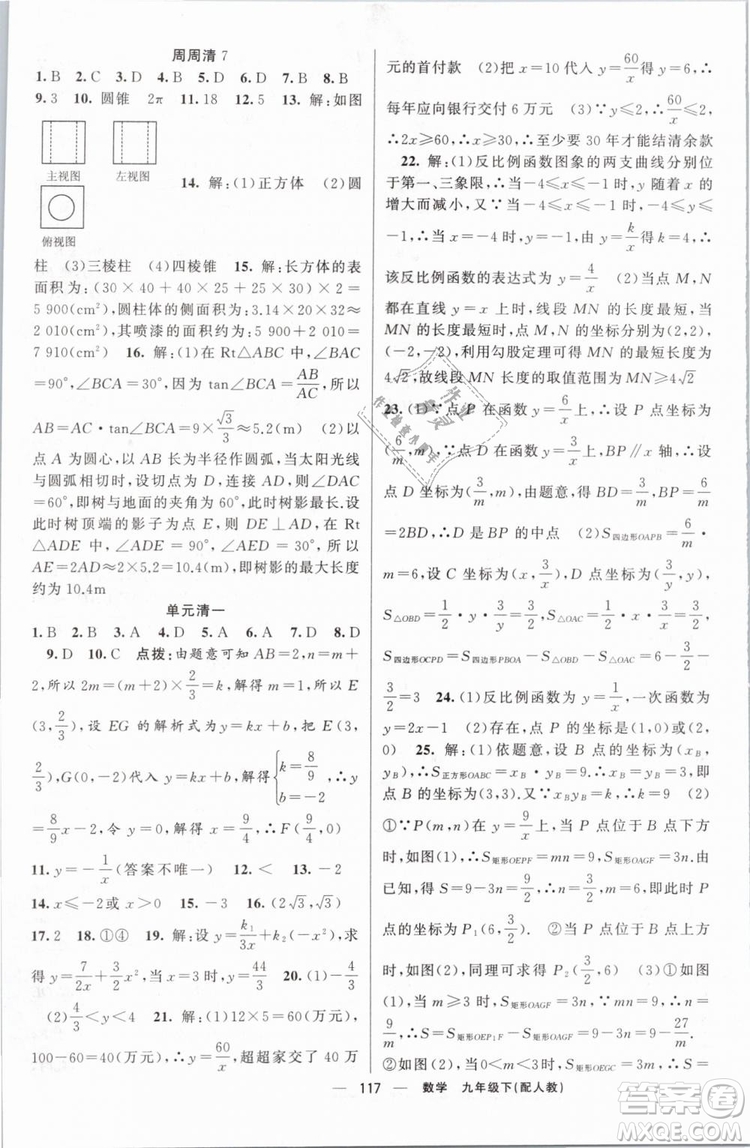 周周清 7
1. B 2. C 3. D 4. B 5. D 6. B 7. B 8. B
9. 3 10. 圆锥 2π 11. 18 12. 5 13. 解:如图
主视图 左视图
14. 解:(1)正方体 (2)圆
俯视图
柱 (3)三棱柱 (4)四棱锥 15. 解:长方体的表
面积为:(30×40+40×20+30×20)×2=
5 900(cm²),圆柱体的侧面积为:3.14×20×32≈
2 010(cm²),其喷漆的面积约为:5 900+2 010=
7 910(cm²) 16. 解:(1)在 Rt△ABC 中,∠BAC
=90°,∠BCA=30°,因为 tan∠BCA=AB/AC,所以
AB=AC·tan∠BCA=9×√3/3≈5.2(m) (2)以
点 A 为圆心,以 AB 长为半径作圆弧,当太阳光线
与圆弧相切时,设切点为 D,连接 AD,所以∠DAC
=60°,即树与地面的夹角为 60°时,树影最长.
此时树顶端的影子为点 E,所以 DE⊥AD,在 Rt
△ADE 中,∠ADE=90°,∠AED=30°,所以
AE=2AD≈2×5.2=10.4(m),即树影的最大长度
约为 10.4m
单元清一
1. B 2. B 3. A 4. D 5. A 6. A 7. D 8. D
9. D 10. C 点拨:由题意可知 AB=2,n=m+
2,所以 2m=(m+2)×2/3=k,解得 m=1,所以 E
(3,2/3),设 EG 的解析式为 y=kx+b,把 E(3,
2/3),G(0,-2)代入 y=kx+b,解得{k=8/9 b=-2,∴y
=8/9x-2,令 y=0,解得 x=9/4,∴F(9/4,0)
11. y=-1/x(答案不唯一) 12. < 13. -2
14. x≤-2或x>0 15. 9/2 16. (2√3,2√3)
17. 2 18. ①④ 19. 解:设 y=k₁/3x+k₂(-x²),求
得 y=7/2x+3/2x²,当 x=3 时,y=44/3 20. (1)y=4/x
(2)4/3<y<4 21. 解:(1)12×5=60(万元),
100-60=40(万元),∴y=60/x,超超家交了 40 万
元的首付款 (2)把 x=10 代入 y=60/x得 y=6,∴
每年应向银行交付 6 万元 (3)∵y≤2,∴60/x≤2,
∴2x≥60,∴x≥30,∴至少要 30 年才能结清余款
22. 解:(1)反比例函数图象的两支曲线分别位于
第一、三象限,∴当-4≤x≤-1 时,y 随着 x 的
增大而减小,又∵当-4≤x≤-1 时,-4≤y≤
-1,∴当 x=-4 时,y=-1,由 y=k/x得 k=4,∴
该反比例函数的表达式为 y=4/x (2)当点 M,N
都在直线 y=x 上时,线段 MN 的长度最短,当
MN 的长度最短时,点 M,N 的坐标分别为(2,2),
(-2,-2),利用勾股定理可得 MN 的最短长度为
4√2,故线段 MN 的取值范围为 MN≥4√2
23. (1)∵点 P 在函数 y=6/x上,∴设 P 点坐标为
(6/m,m),∵点 D 在函数 y=3/x上,BP∥x 轴,∴设
点 D 坐标为(3/m,m),由题意,得 BD=3/m,BP=6/m
=2BD,∴D 是 BP 的中点 (2)S四边形OAPB=6/m·
m=6,设 C 点坐标为(x,3/x),D 点坐标为(3/y,y),
S△OBD=1/2·y·3/y=3/2,S△OAC=1/2·x·3/x=3/2,
S四边形OCPD=S四边形PBOA-S△OBD-S△OAC=6-3/2-
3/2=3 24. (1)反比例函数为 y=1/x,一次函数为
y=2x-1 (2)存在,点 P 的坐标为(1,0)或(2,
0) 25. 解:(1)依题意,设 B 点的坐标为(x_B,
y_B),∴S正方形OABC=x_B·y_B=9,∴x_B=y_B=3,即
点 B 的坐标为(3,3).∵x_By_B=k,∴k=9 (2)
①∵P(m,n)在 y=9/x上,当 P 点位于 B 点下方
时,如图(1),∴S矩形OEPF=mn=9,S矩形OAGF=3n.由
已知,得 S=9-3n=9/2,∴n=3/2,m=6,即此时 P
点的坐标为 P₁(6,3/2);当 P 点位于 B 点上方时,
如图(2),同理可求得 P₂(3/2,6) ②如图(1),当
m≥3 时,S矩形OAGF=3n,∵mn=9,∴n=
9/m,∴S=S矩形OEP₁F-S矩形OAGF=9-3n=9-27/m.
②如图(2),当 0<m<3 时,S矩形OEGC=3m,
117 数学 九年级下(配人教)
作业检查小助手
答案圈